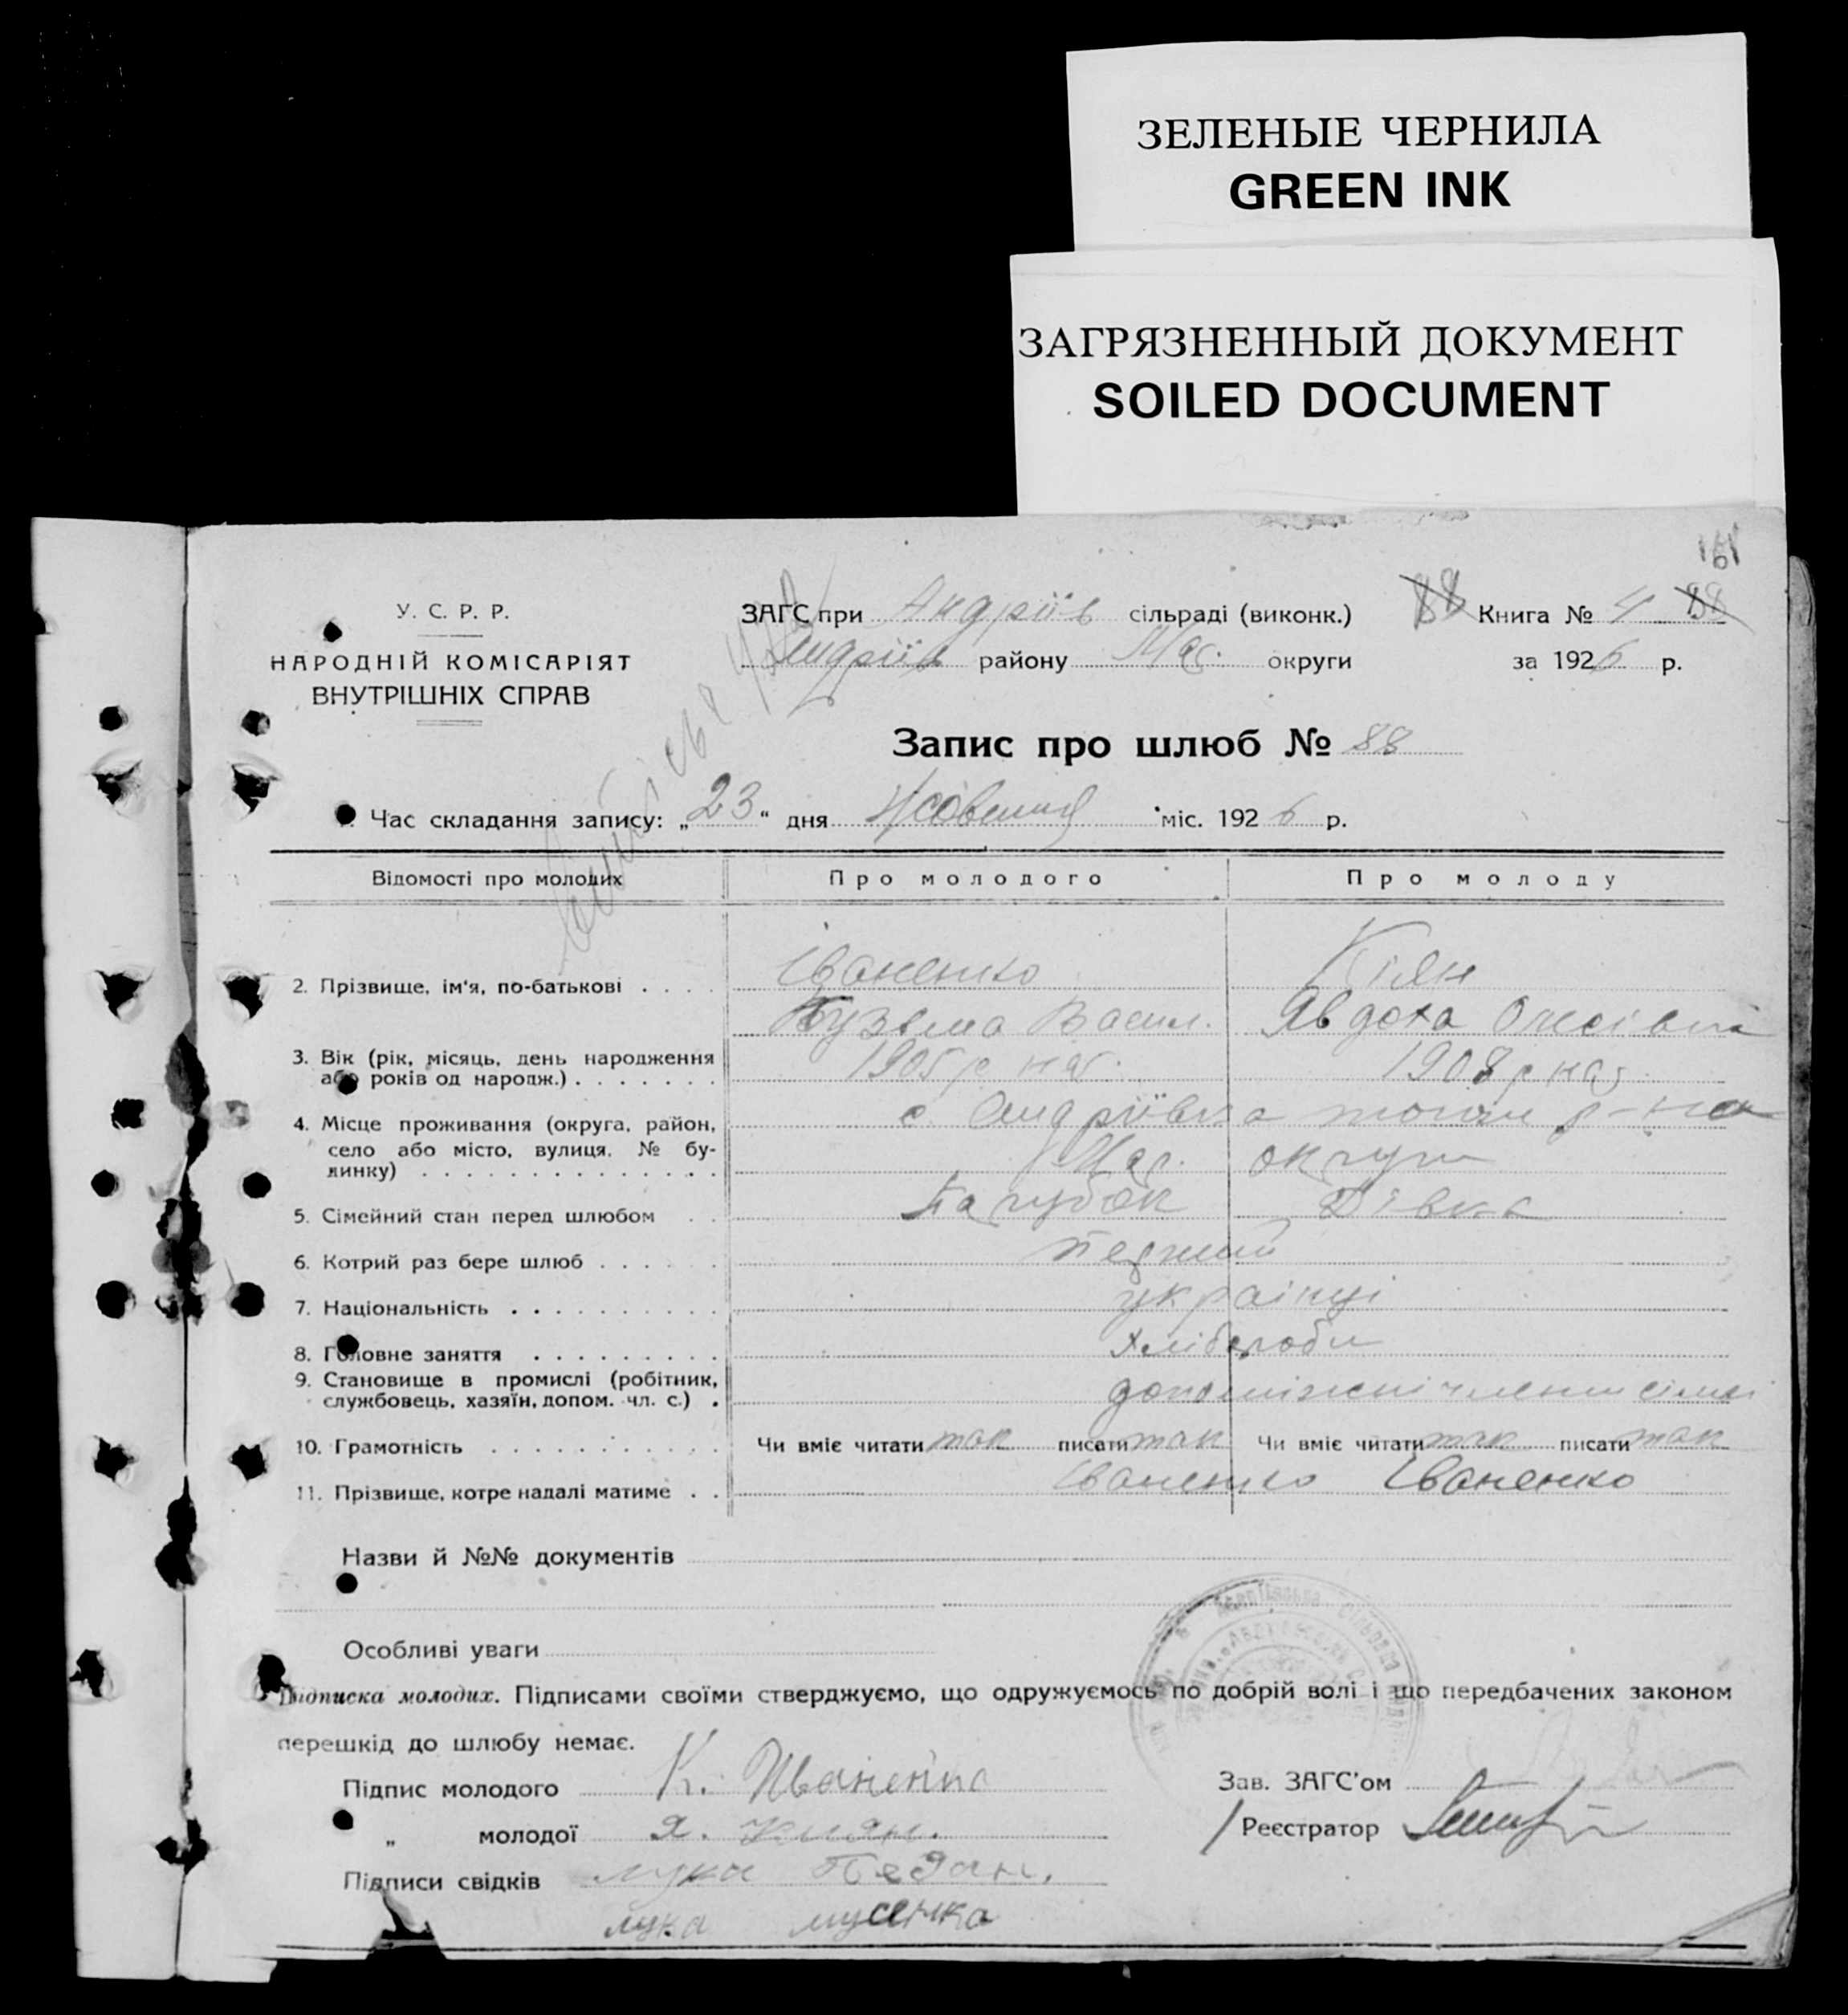 ЗЕЛЕНЫЕ ЧЕРНИЛА
GREEN INK
ЗАГРЯЗНЕННЫЙ ДОКУМЕНТ
SOILED DOCUMENT
161
У. С. Р. Р.
НАРОДНІЙ КОМІСАРІЯТ
ВНУТРІШНІХ СПРАВ
ЗАГС при Андріїв сільраді (виконк.) 88 Книга № 4 88
Андріїв району Мар. округи за 1926 р.
Запис про шлюб № 88
Час складання запису: „23“ дня Жовтня міс. 1926 р.
Відомості про молодих Про молодого Про молоду
2. Прізвище, ім'я, по-батькові Іваненко Кіян
Кузьма Васил. Явдоха Олексіївна
3. Вік (рік, місяць, день народження 1905 р нар. 1908 р нар
або років од народж.)
4. Місце проживання (округа, район, с. Андріївка того ж р-на
село або місто, вулиця, № бу- Мар. округи
динку)
5. Сімейний стан перед шлюбом Парубок Дівка
6. Котрий раз бере шлюб перший
7. Національність українці
8. Головне заняття Хлібороби
9. Становище в промислі (робітник,
службовець, хазяїн, допом. чл. с.) допоміжні члени сімьї
10. Грамотність Чи вміє читати так писати так Чи вміє читати так писати так
11. Прізвище, котре надалі матиме Іваненко Іваненко
Назви й №№ документів
Особливі уваги
Підписка молодих. Підписами своїми стверджуємо, що одружуємось по добрій волі і що передбачених законом
перешкід до шлюбу немає.
Підпис молодого К. Иваненко
Зав. ЗАГС'ом
„ молодої Я. Киян.
Реєстратор
Підписи свідків лука Педан.
лука мусічка